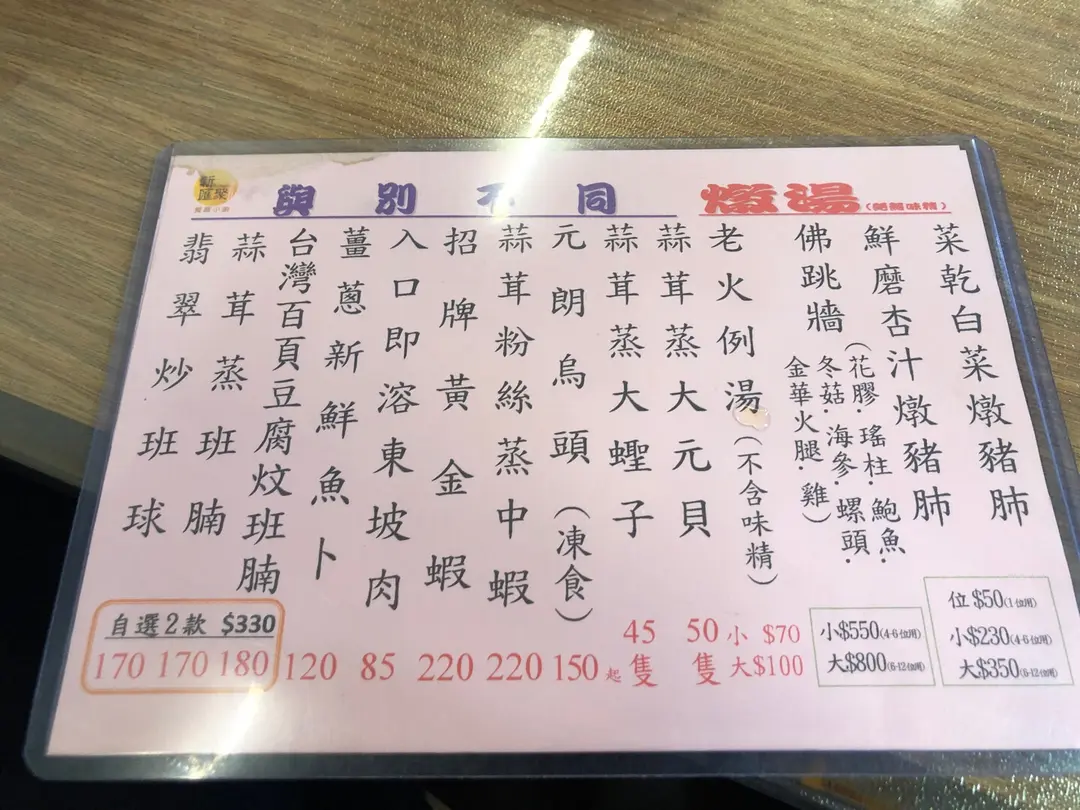 新匯聚
與別不同
燉湯
菜乾白菜燉豬肺
鮮磨杏汁燉豬肺
位 $50(1位用)
小$230(4-6位用)
大$350(6-12位用)
佛跳牆(花膠·瑤柱·鮑魚·
冬菇·海參·螺頭·
金華火腿·雞)
小$550(4-6位用)
大$800(6-12位用)
老火例湯(不含味精)
小 $70
大$100
蒜茸蒸大元貝
50隻
蒜茸蒸大蟶子
45隻
元朗烏頭(凍食)
150起
蒜茸粉絲蒸中蝦
220
招牌黃金蝦
220
入口即溶東坡肉
85
薑蔥新鮮魚卜
120
台灣百頁豆腐炆班腩
180
蒜茸蒸班腩
170
翡翠炒班球
170
自選2款 $330